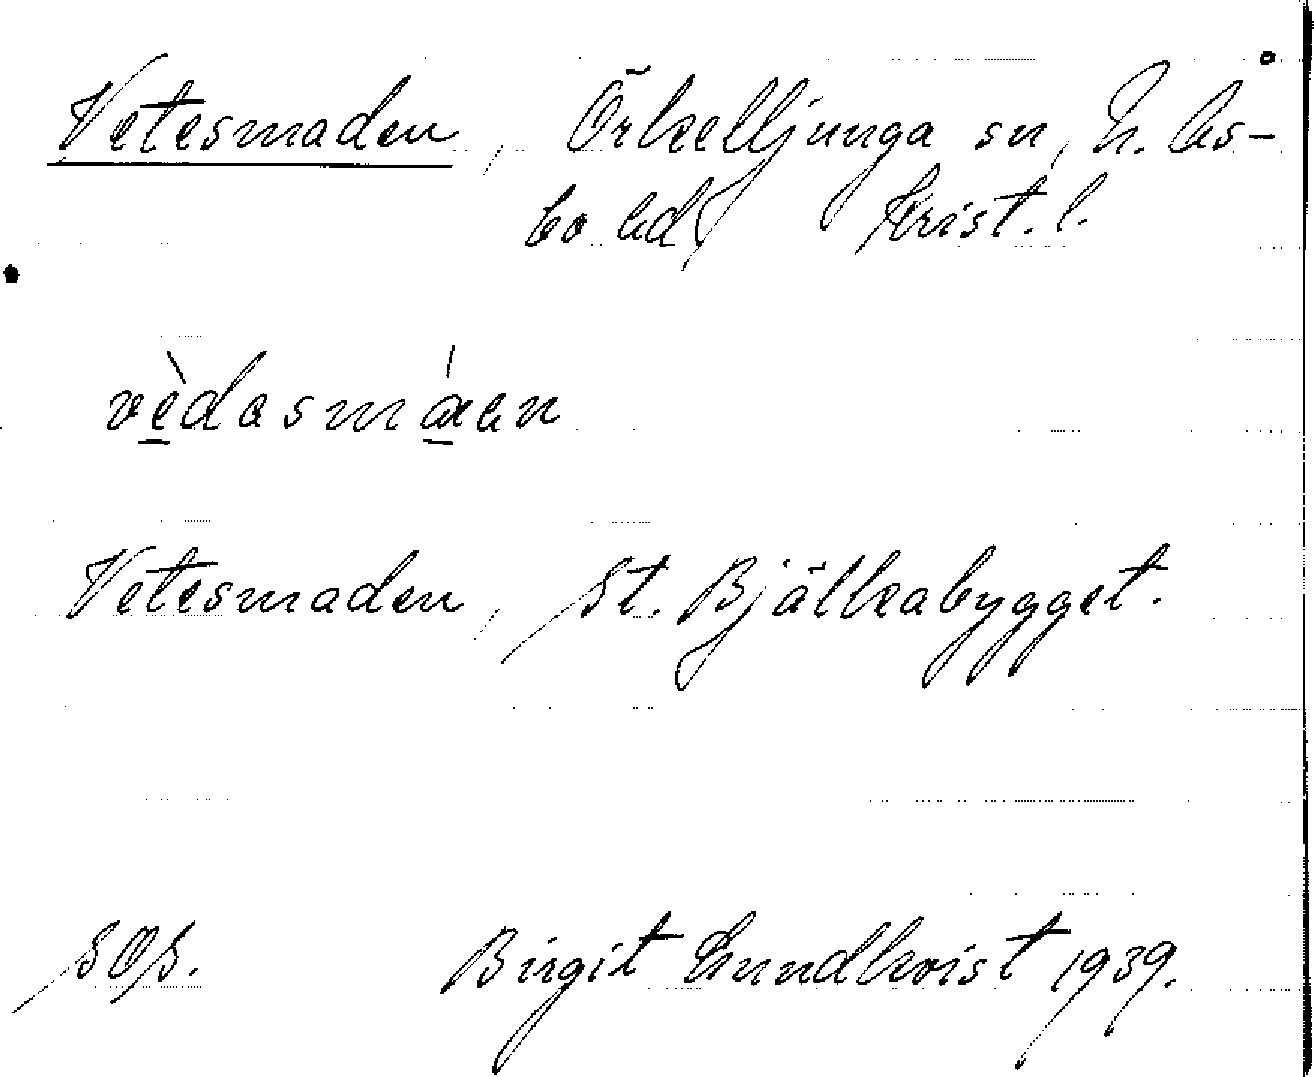 Vetesmaden, Örkelljunga sn, N. Ås-
bo hd, Krist. l.
vèdasmáen
Vetesmaden, St. Bjälkabygget.
SOS. Birgit Lundkvist 1939.